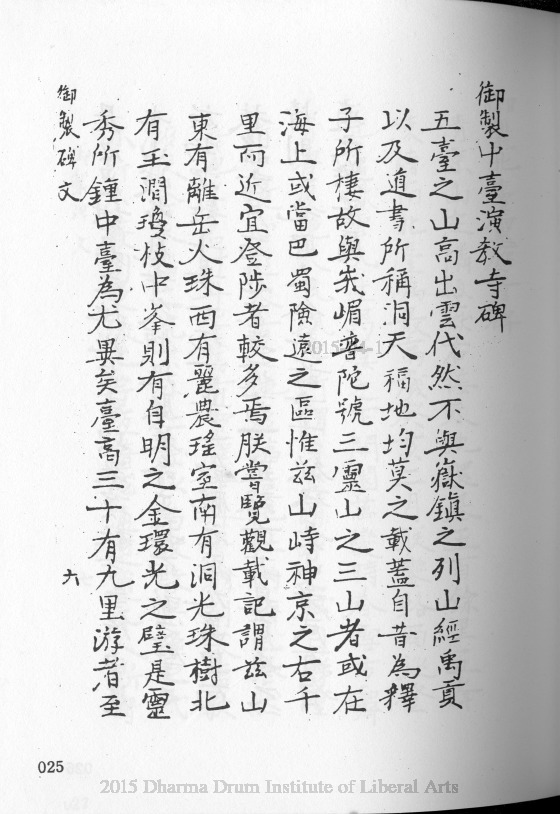 御製中臺演教寺碑
五臺之山高出雲代然不與嶽鎮之列山經禹貢
以及道書所稱洞天福地均莫之載蓋自昔為釋
子所棲故與峩嵋普陀號三靈山之三山者或在
海上或當巴蜀險遠之區惟玆山峙神京之右千
里而近宜登陟者較多焉朕嘗覽觀載記謂玆山
東有離岳火珠西有麗農瑤室南有洞光珠樹北
有玉澗瓊枝中峯則有自明之金環光之璧是靈
秀所鍾中臺為尤異矣臺高三十有九里游者至
御製碑文
六
025
2015 Dharma Drum Institute of Liberal Arts